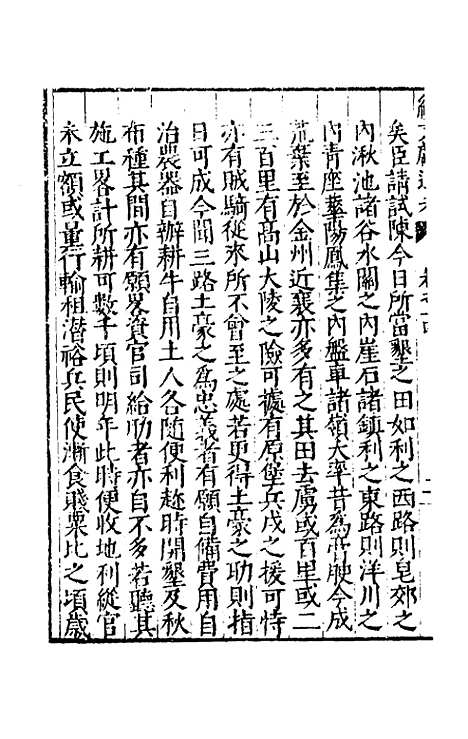 矣臣請試陳今日所當墾之田如利之西路則皂郊之
內湫池諸谷水關之內崖石諸鎮利之東路則洋川之
內青座華陽鳳集之內盤車諸嶺大率昔為膏腴今成
荒葉至於金州近襄亦多有之其田去虜或百里或二
三百里有高山大陵之險可據有原堡兵戍之援可恃
亦有賊騎從來所不曾至之處若更得土豪之助則指
日可成今聞三路土豪之為忠義者有願自備費用自
治農器自辦耕牛自用土人各隨便利趂時開墾及秋
布種其間亦有願畧資官司給助者亦自不多若聽其
施工畧計所耕可數千頃則明年此時便收地利縱官
未立額或量行輸租潛裕兵民使漸食賤粟比之頃歲